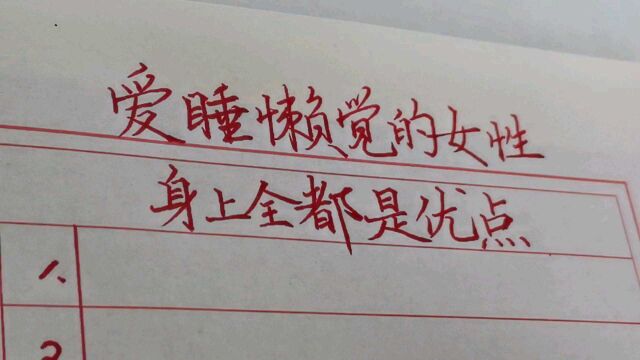 爱睡懒觉的女性
身上全都是优点
1.
2